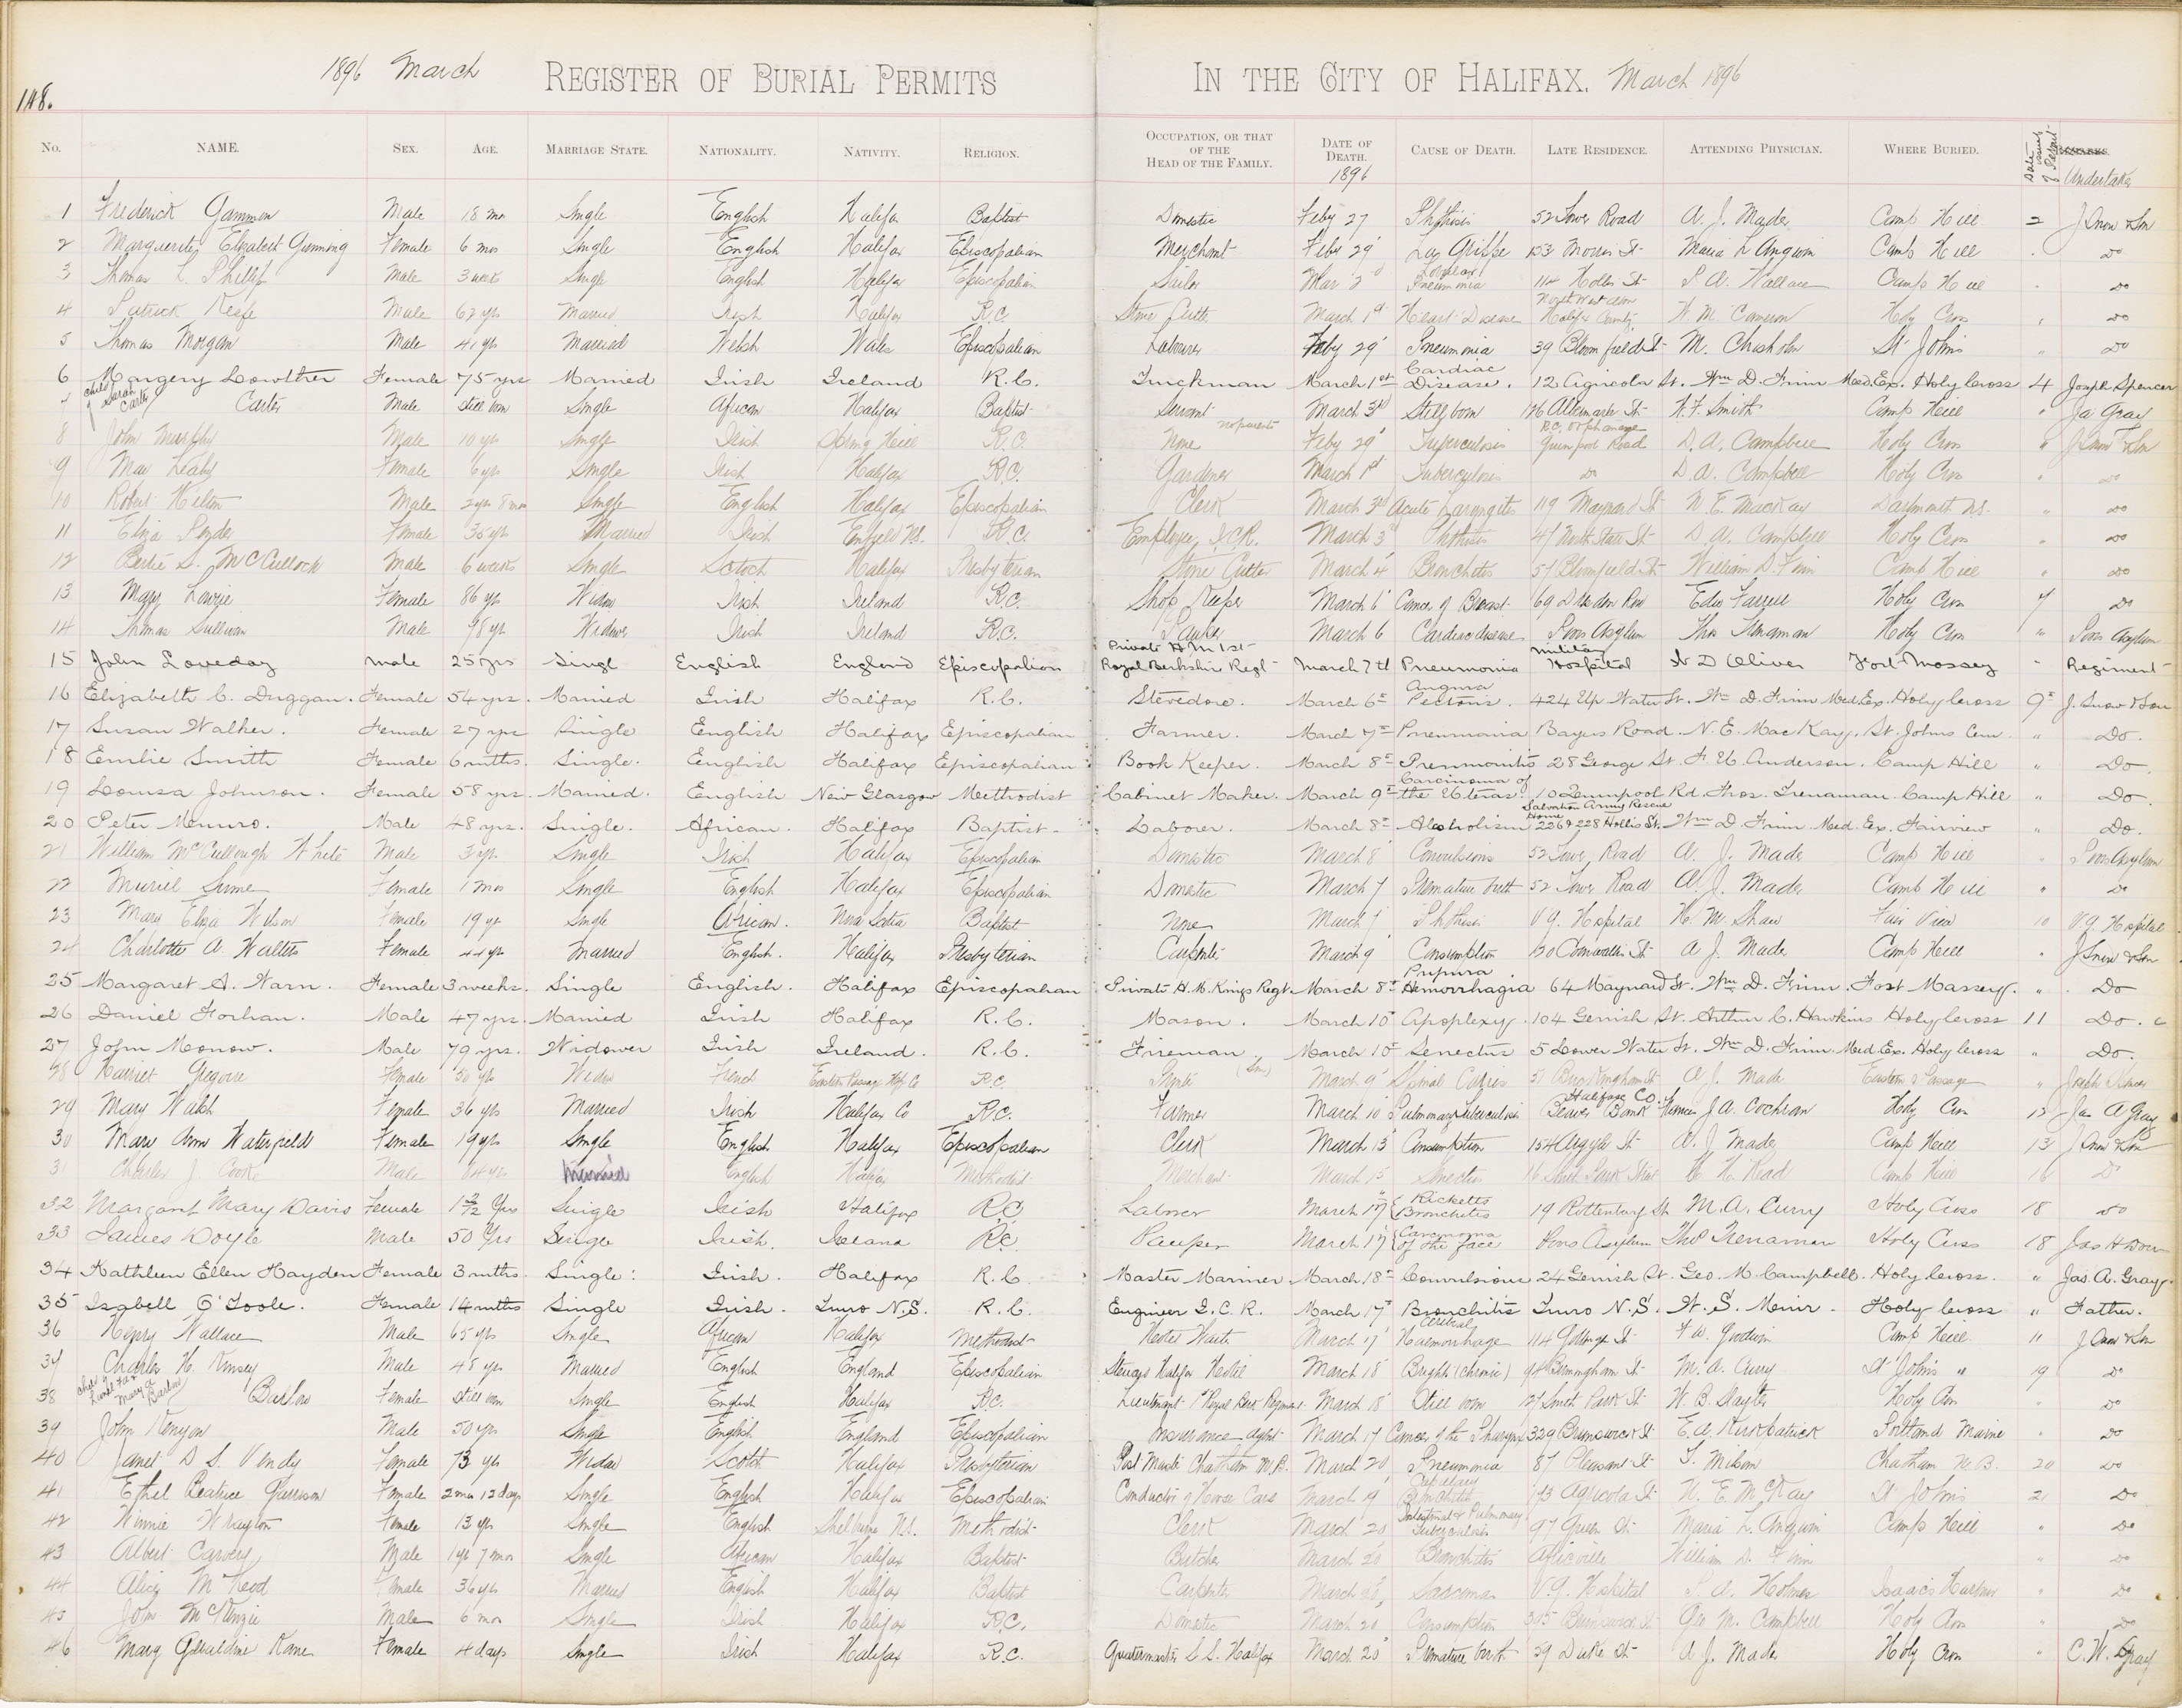 148.
1896 March REGISTER OF BURIAL PERMITS IN THE CITY OF HALIFAX. March 1896
No. NAME. SEX. AGE. MARRIAGE STATE. NATIONALITY. NATIVITY. RELIGION. OCCUPATION, OR THAT OF THE HEAD OF THE FAMILY. DATE OF DEATH. 1896 CAUSE OF DEATH. LATE RESIDENCE. ATTENDING PHYSICIAN. WHERE BURIED. Date issuing of Permit Undertaker
1 Frederick Gammon Male 18 mos Single English Halifax Baptist Domestic Feby 27 Phthisis 52 Tower Road A. J. Mader Camp Hill 2 J Snow & Son
2 Marguerite Elizabeth Gunning Female 6 mos Single English Halifax Episcopalian Merchant Feby 29 La Grippe 123 Morris St Maria L Angwin Camp Hill " Do
3 Thomas L. Phillip Male 3 weeks Single English Halifax Episcopalian Sailor Mar 2 Lobular Pneumonia 114 Hollis St Wallace Camp Hill " Do
4 Patrick Keefe Male 62 yrs Married Irish Halifax R.C. Stone Cutter March 1st Heart Disease North West Arm Halifax County W. M. Cameron Holy Cross " Do
5 Thomas Morgan Male 41 yrs Married Welsh Wales Episcopalian Labourer Feby 29 Pneumonia 39 Bloomfield St M. Chisholm St Johns " Do
6 Margery Lowther Female 75 yrs Married Irish Ireland R.C. Truckman March 1st Cardiac Disease. 12 Agricola St. Wm D. Finn Med. Ex. Holy Cross 4 Joseph Spencer
7 Child of Sarah Carter Carter Male Still born Single African Halifax Baptist Servant March 3rd Still born 176 Albemarle St W. F. Smith Camp Hill " Ja Gray
8 John Murphy Male 10 yrs Single Irish Spring Hill R.C. None no parents Feby 29 Tuberculosis R.C. Orphanage Quinpool Road D. A. Campbell Holy Cross " J Snow & Son
9 May Leahy Female 6 yrs Single Irish Halifax R.C. Gardener March 1st Tuberculosis Do D. A. Campbell Holy Cross " Do
10 Robert Hilton Male 2 yrs 8 mos Single English Halifax Episcopalian Clerk March 3rd Acute Laryngitis 119 Maynard St N. E. MacKay Dartmouth N.S. " Do
11 Eliza Female 35 yrs Married Irish Enfield N.S. R.C. Employee I.C.R. March 3 Phthisis 47 North State St D. A. Campbell Holy Cross " Do
12 Bertie S. McCullock Male 6 weeks Single Scotch Halifax Presbyterian Stone Cutter March 4 Bronchitis 57 Bloomfield St William D. Finn Camp Hill " Do
13 Mary Female 86 yrs Widow Irish Ireland R.C. Shop Keeper March 6 Cancer of Breast 69 Dresden Row Edw Farrell Holy Cross 7 Do
14 Thomas Sullivan Male 98 yrs Widower Irish Ireland R.C. Pauper March 6 Cardiac disease Poors Asylum Thos Trenaman Holy Cross " Poors Asylum
15 John Loveday male 25 yrs Single English England Episcopalian Private H M 1st Royal Berkshire Regt March 7th Pneumonia Military Hospital W D Oliver Fort Massey " Regiment
16 Elizabeth C. Duggan. Female 54 yrs. Married Irish Halifax R.C. Stevedore. March 6th Angina Pectoris. 424 Up Water St. Wm D. Finn Med. Ex. Holy Cross 9th J. Snow & Son
17 Susan Walker. Female 27 yrs Single English Halifax Episcopalian Farmer. March 7th Pneumonia Bayers Road. N. E. MacKay. St. Johns Cem. " Do.
18 Emilie Smith Female 6 mths. Single. English Halifax Episcopalian Book Keeper. March 8th Pneumonitis 28 George St. F. U. Anderson. Camp Hill " Do
19 Louisa Johnson. Female 58 yrs. Married. English New Glasgow Methodist Cabinet Maker. March 9th Carcinoma of the Uterus. 10 Quinpool Rd. Thos. Trenaman. Camp Hill " Do.
20 Peter Munro. Male 48 yrs. Single. African. Halifax Baptist Laborer. March 8th Alcoholism Salvation Army Rescue Home 226 & 228 Hollis St. Wm D. Finn Med. Ex. Fairview " Do.
21 William McCullough White Male 3 yrs Single Irish Halifax Episcopalian Domestic March 8 Convulsions 52 Tower Road A. J. Mader Camp Hill " Poors Asylum
22 Muriel Female 1 mos Single English Halifax Episcopalian Domestic March 7 Premature birth 52 Tower Road A. J. Mader Camp Hill " Do
23 Mary Eliza Wilson Female 19 yr Single African. Nova Scotia Baptist None March 7 Phthisis V. G. Hospital H. M. Shaw Fair View 10 V. G. Hospital
24 Charlotte A. Walters Female 44 yrs Married English. Halifax Presbyterian Carpenter March 9 Consumption 120 Cornwallis St A J. Mader Camp Hill " J Snow & Son
25 Margaret A. Warn. Female 3 weeks. Single English. Halifax Episcopalian Private H. M. Kings Regt. March 8th Purpura Hemorrhagia 64 Maynard St. Wm D. Finn. Fort Massey. " Do
26 Daniel Forhan. Male 47 yrs. Married Irish Halifax R.C. Mason. March 10th Apoplexy. 104 Gerrish St. Arthur C. Hawkins Holy Cross 11 Do.
27 John Monow. Male 79 yrs. Widower Irish Ireland. R.C. Fireman. March 10th Senectus 5 Lower Water St. Wm D. Finn. Med. Ex. Holy Cross " Do.
28 Harriet Gregoire Female 50 yrs Widow French Eastern Passage Hfx Co R.C. (Son) March 9 Spinal Caries 51 Buckingham St A J. Mader Eastern Passage " Joseph Spencer
29 Mary Walsh Female 36 yrs Married Irish Halifax Co R.C. Farmer March 10 Pulmonary Tuberculosis Beaver Bank Halifax Co. J. A. Cochran Holy Cross 12 Jas A Gray
30 Mary Ann Waterfield Female 19 yrs Single English Halifax Episcopalian Clerk March 13 Consumption 154 Argyle St A. J Mader Camp Hill 13 J Snow & Son
31 Charles J Cooke Male 84 yrs Married English Halifax Methodist Merchant March 15 Senectus 16 South Park Street H. H. Read Camp Hill 16 Do
32 Margaret Mary Davis Female Yrs Single Irish Halifax RC Laborer March 17 Ricketts Bronchitis 19 Rottenburg St M. A. Curry Holy Cross 18 Do
33 James Doyle Male 50 Yrs Single Irish. Ireland R.C. Pauper March 17 Carcinoma of the face Poors Asylum Thos Trenaman Holy Cross 18 Jas H Dower
34 Kathleen Ellen Hayden Female 3 mths. Single: Irish. Halifax R.C. Master Mariner. March 18th Convulsions 24 Gerrish St. Geo. M. Campbell. Holy Cross. " Jas. A. Gray.
35 Isabell O'Toole. Female 14 mths Single Irish. Truro N.S. R.C. Engineer I.C.R. March 17th Bronchitis Truro N.S. W. S. Muir. Holy Cross " Father.
36 Henry Wallace Male 65 yrs Single African Halifax Methodist Hotel Waiter March 17 Cerebral Haemorrhage 114 Gottingen St F. W. Goodwin Camp Hill " J Snow & Son
37 Charles H. Kinsey Male 48 yrs Married English England Episcopalian Steward Halifax Hotel March 18 Brights (Chronic) 98 Birmingham St M. A. Curry St Johns " 19 Do
38 Child of Mary A Barlow Barlow Female Still born Single English Halifax R.C. Lieutenant 1st Royal Berk Regiment March 18 Still born South Park St W. B. Slayter Holy Cross " Do
39 John Kenyon Male 50 yrs Single English England Episcopalian Insurance Agent March 17 Cancer of the Pharynx 329 Brunswick St E. A. Kirkpatrick Portland Maine " Do
40 Janet D S. Vondy Female 73 yrs Widow Scotch Halifax Presbyterian Post Master Chatham N.B. March 20 Pneumonia 87 Pleasant St Chatham N B. 20 Do
41 Ethel Beatrice Garrison Female 2 mos 12 days Single English Halifax Episcopalian Conductor of Horse Cars March 19 Capillary Bronchitis 173 Agricola St N. E. McKay St Johns 21 Do
42 Winnie Wrayton Female 13 yrs Single English Shelburne N.S. Methodist Clerk March 20 Intestinal & Pulmonary Tuberculosis 97 Queen St Maria L. Angwin Camp Hill " Do
43 Albert Carvery Male 1 yr 7 mos Single African Halifax Baptist Butcher March 20 Bronchitis Africville William D. Finn " Do
44 Alice McLeod Female 36 yrs Married English Halifax Baptist Carpenter March Sarcoma V. G. Hospital Holmes Isaacs Harbour " Do
45 John McKenzie Male 6 mos Single Irish Halifax R.C. Domestic March 20 Consumption Brunswick St Geo M. Campbell Holy Cross " Do
46 Mary Geraldine Kane Female 4 days Single Irish Halifax R.C. Quartermaster S. S. Halifax March 20 Premature birth 39 Duke St A J. Mader Holy Cross " C. W. Gray